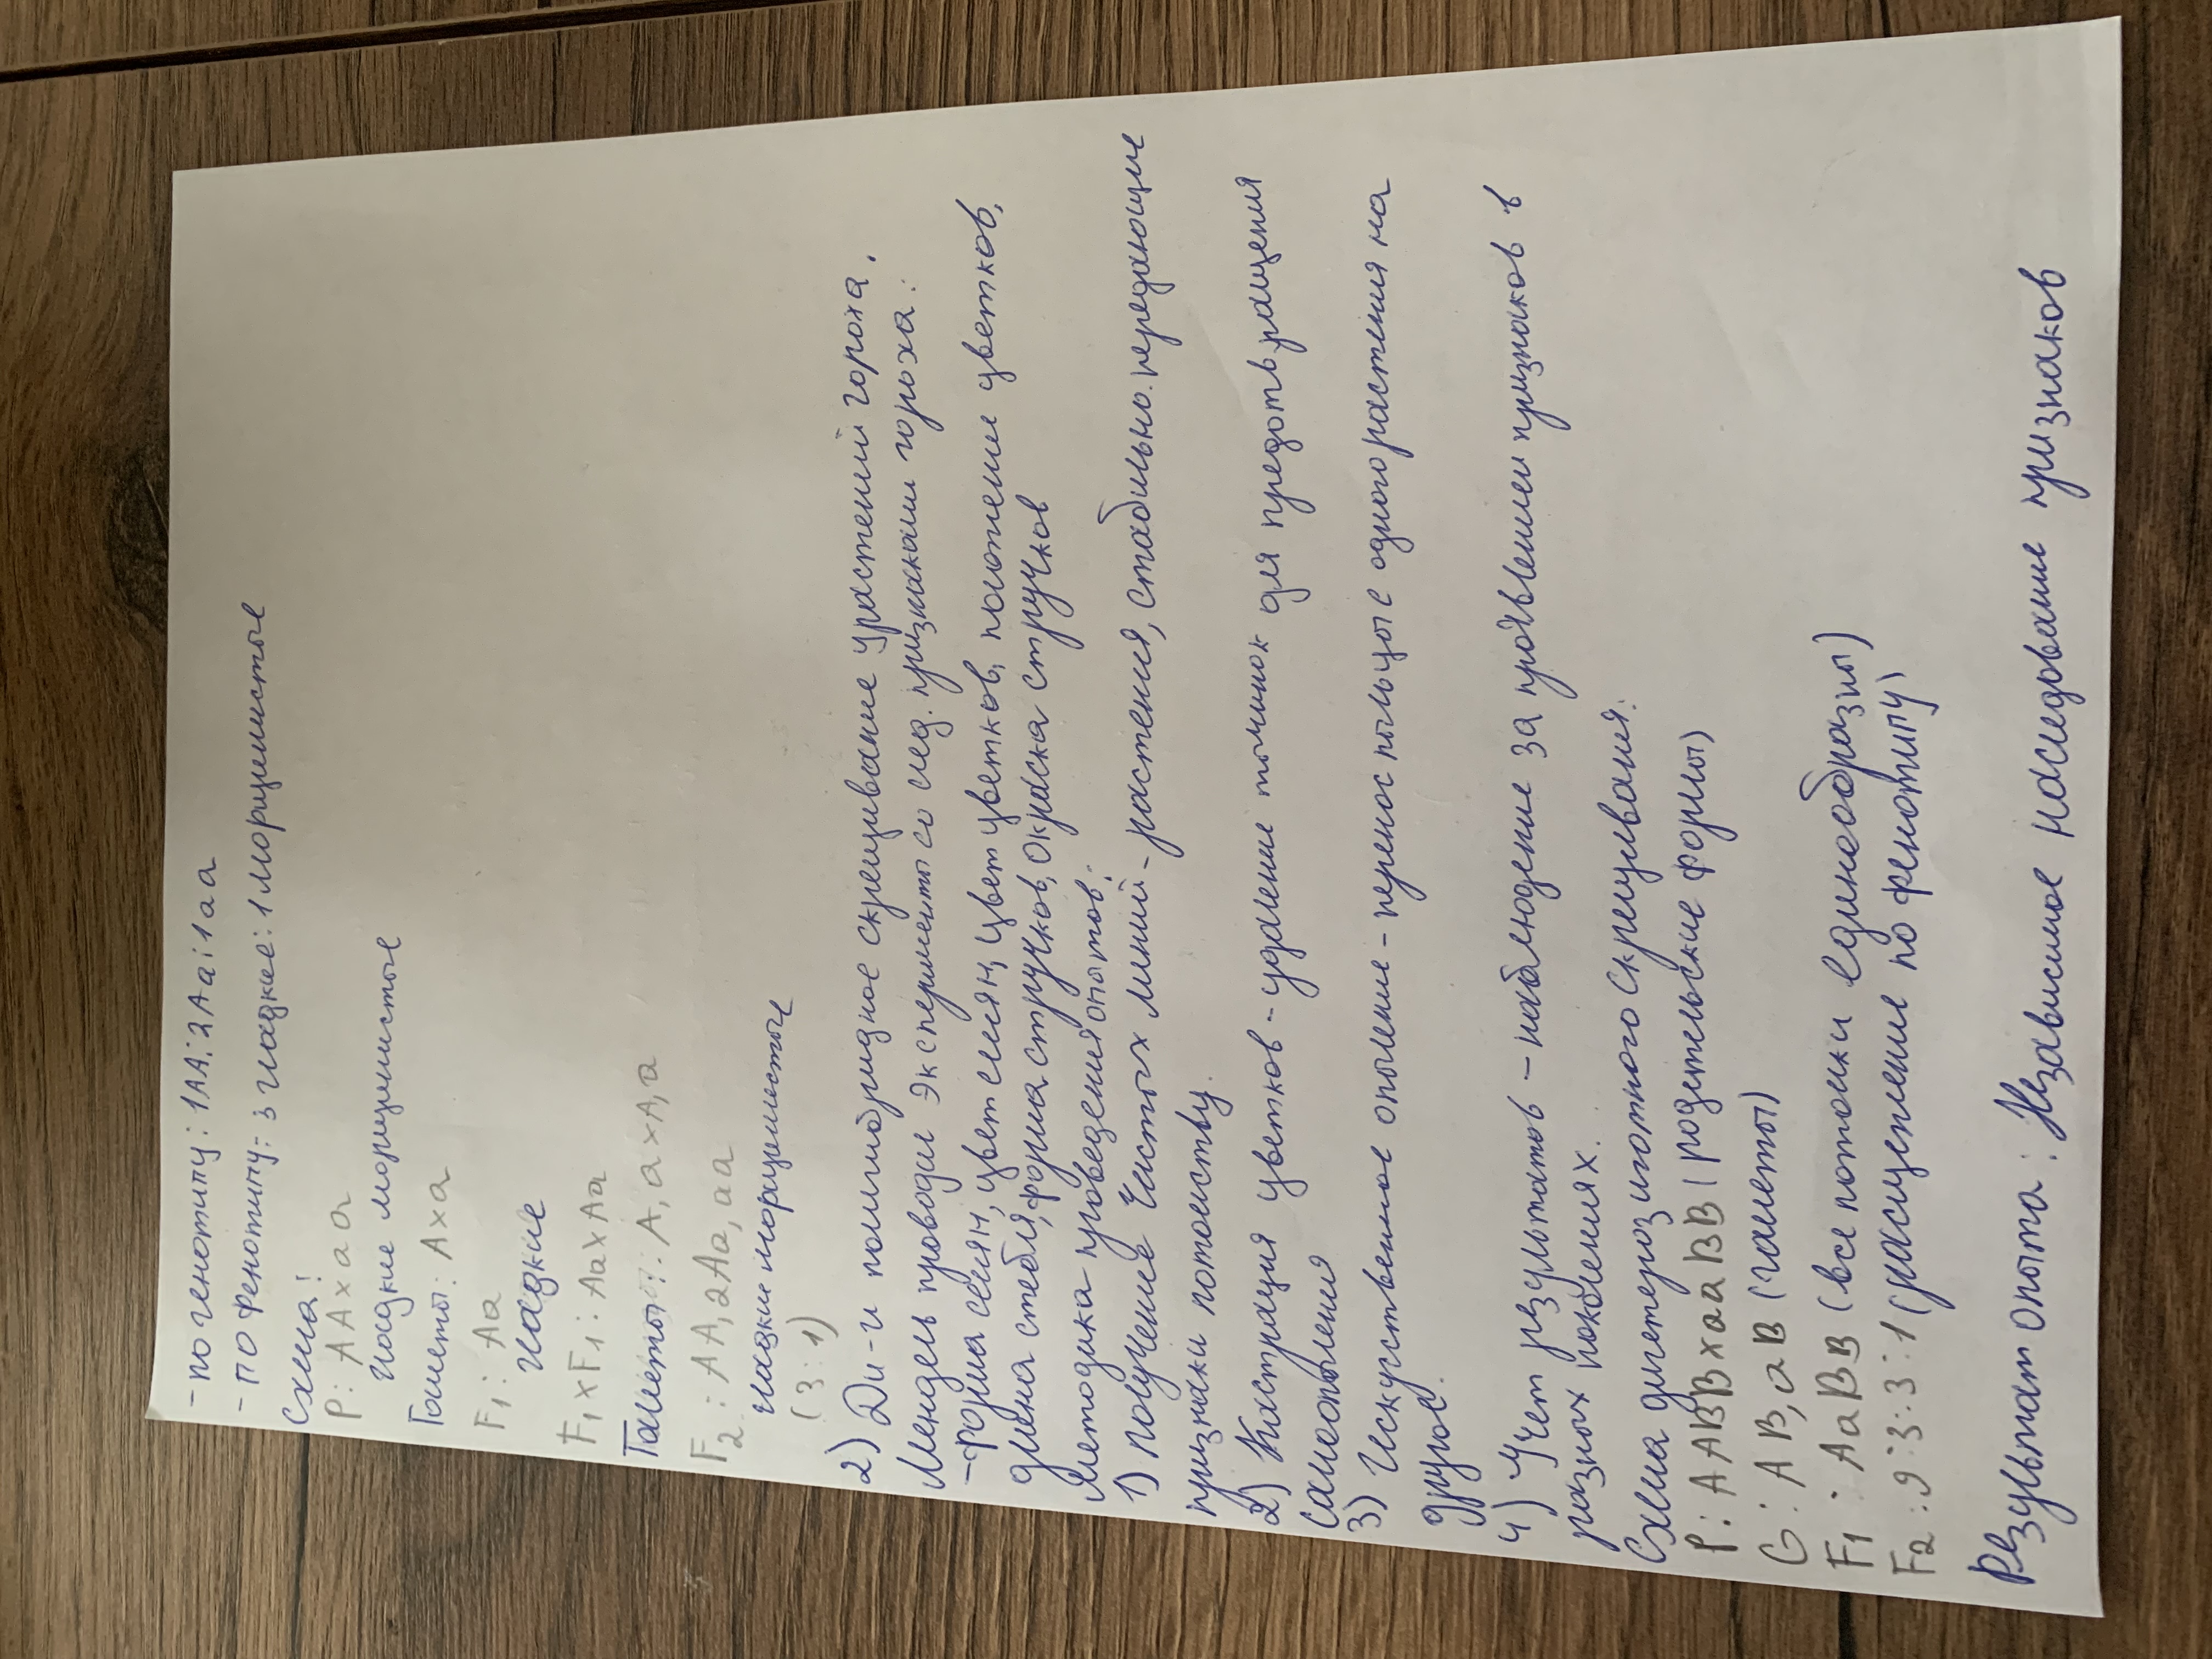 - по генотипу: 1АА:2Аа:1аа
- по фенотипу: 3 гладкие: 1 морщинистые
Схема:
Р: АА х аа
гладкие морщинистые
Гаметы: А х а
F1: Аа
гладкие
F1 x F1: Аа х Аа
Гаметы: А, а х А, а
F2: АА, 2Аа, аа
гладкие морщинистые
(3:1)
2) Ди- и полигибридное скрещивание у растений гороха.
Мендель проводил эксперименты со след. признаками гороха:
- Форма семян, цвет семян, цвет цветков, положение цветков,
длина стебля, форма стручков, окраска стручков
Методика проведения опытов:
1) получение чистых линий - растения, стабильно передающие
признаки потомству.
2) Кастрация цветков - удаление тычинок для предотвращения
самоопыления
3) Искуственное опыление - перенос пыльцы с одного растения на
другое.
4) Учет результатов - наблюдение за проявлением признаков в
разных поколениях.
Схема дигетерозиготного скрещивания:
Р: ААВВ х ааВВ (родительские формы)
G: АВ, аВ (гаметы)
F1: АаВВ (все потомки единообразны)
F2: 9:3:3:1 (расщепление по фенотипу)
Результат опыта: Независимое наследование признаков